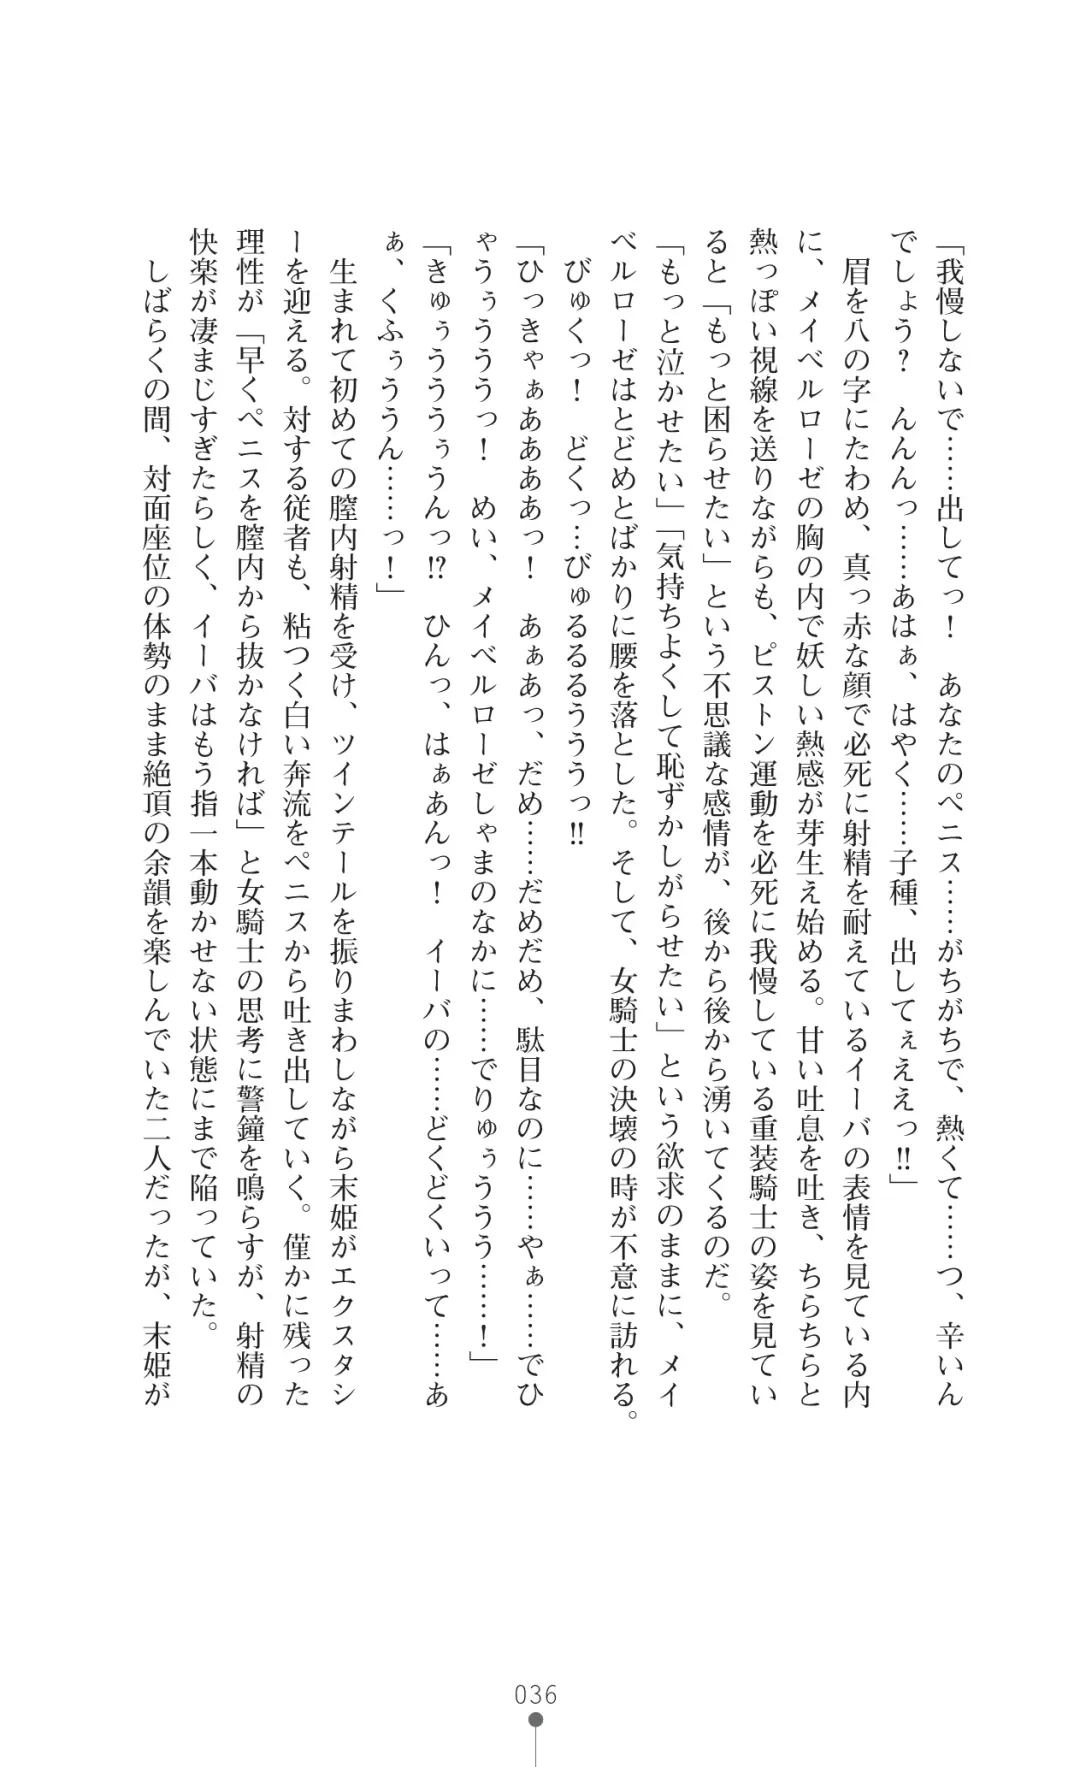 「我慢しないで……出してっ！　あなたのペニス……がちがちで、熱くて……つ、辛いん
でしょう？　んんんっ……あはぁ、はやく……子種、出してぇええっ!!」
　眉を八の字にたわめ、真っ赤な顔で必死に射精を耐えているイーバの表情を見ている内
に、メイベルローゼの胸の内で妖しい熱感が芽生え始める。甘い吐息を吐き、ちらちらと
熱っぽい視線を送りながらも、ピストン運動を必死に我慢している重装騎士の姿を見てい
ると「もっと困らせたい」という不思議な感情が、後から後から湧いてくるのだ。
「もっと泣かせたい」「気持ちよくして恥ずかしがらせたい」という欲求のままに、メイ
ベルローゼはとどめとばかりに腰を落とした。そして、女騎士の決壊の時が不意に訪れる。
　びゅくっ！　どくっ…びゅるるるうううっ!!
「ひっきゃぁああああっ！　あぁあっ、だめ……だめだめ、駄目なのに……やぁ……でひ
ゃうぅうううっ！　めい、メイベルローゼしゃまのなかに……でりゅぅううう……！」
「きゅぅうううぅうんっ!?　ひんっ、はぁあんっ！　イーバの……どくどくいって……あ
ぁ、くふぅううん……っ！」
　生まれて初めての膣内射精を受け、ツインテールを振りまわしながら末姫がエクスタシ
ーを迎える。対する従者も、粘つく白い奔流をペニスから吐き出していく。僅かに残った
理性が「早くペニスを膣内から抜かなければ」と女騎士の思考に警鐘を鳴らすが、射精の
快楽が凄まじすぎたらしく、イーバはもう指一本動かせない状態にまで陥っていた。
　しばらくの間、対面座位の体勢のまま絶頂の余韻を楽しんでいた二人だったが、末姫が
036